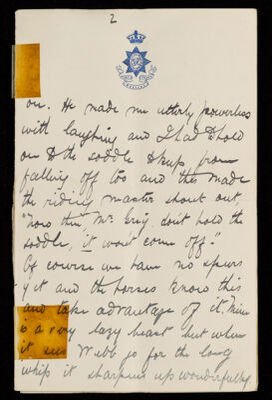 2
on. He made me utterly powerless
with laughing and I had to hold
on to the saddle to keep from
falling off too and this made
the riding master shout out,
"now then Mr. don't hold the
saddle, it won't come off."
Of course we have no spurs
yet and the horses know this
and take advantage of it. Mine
is a very lazy beast but when
it sees Webb go for the long
whip it sharpens up wonderfully